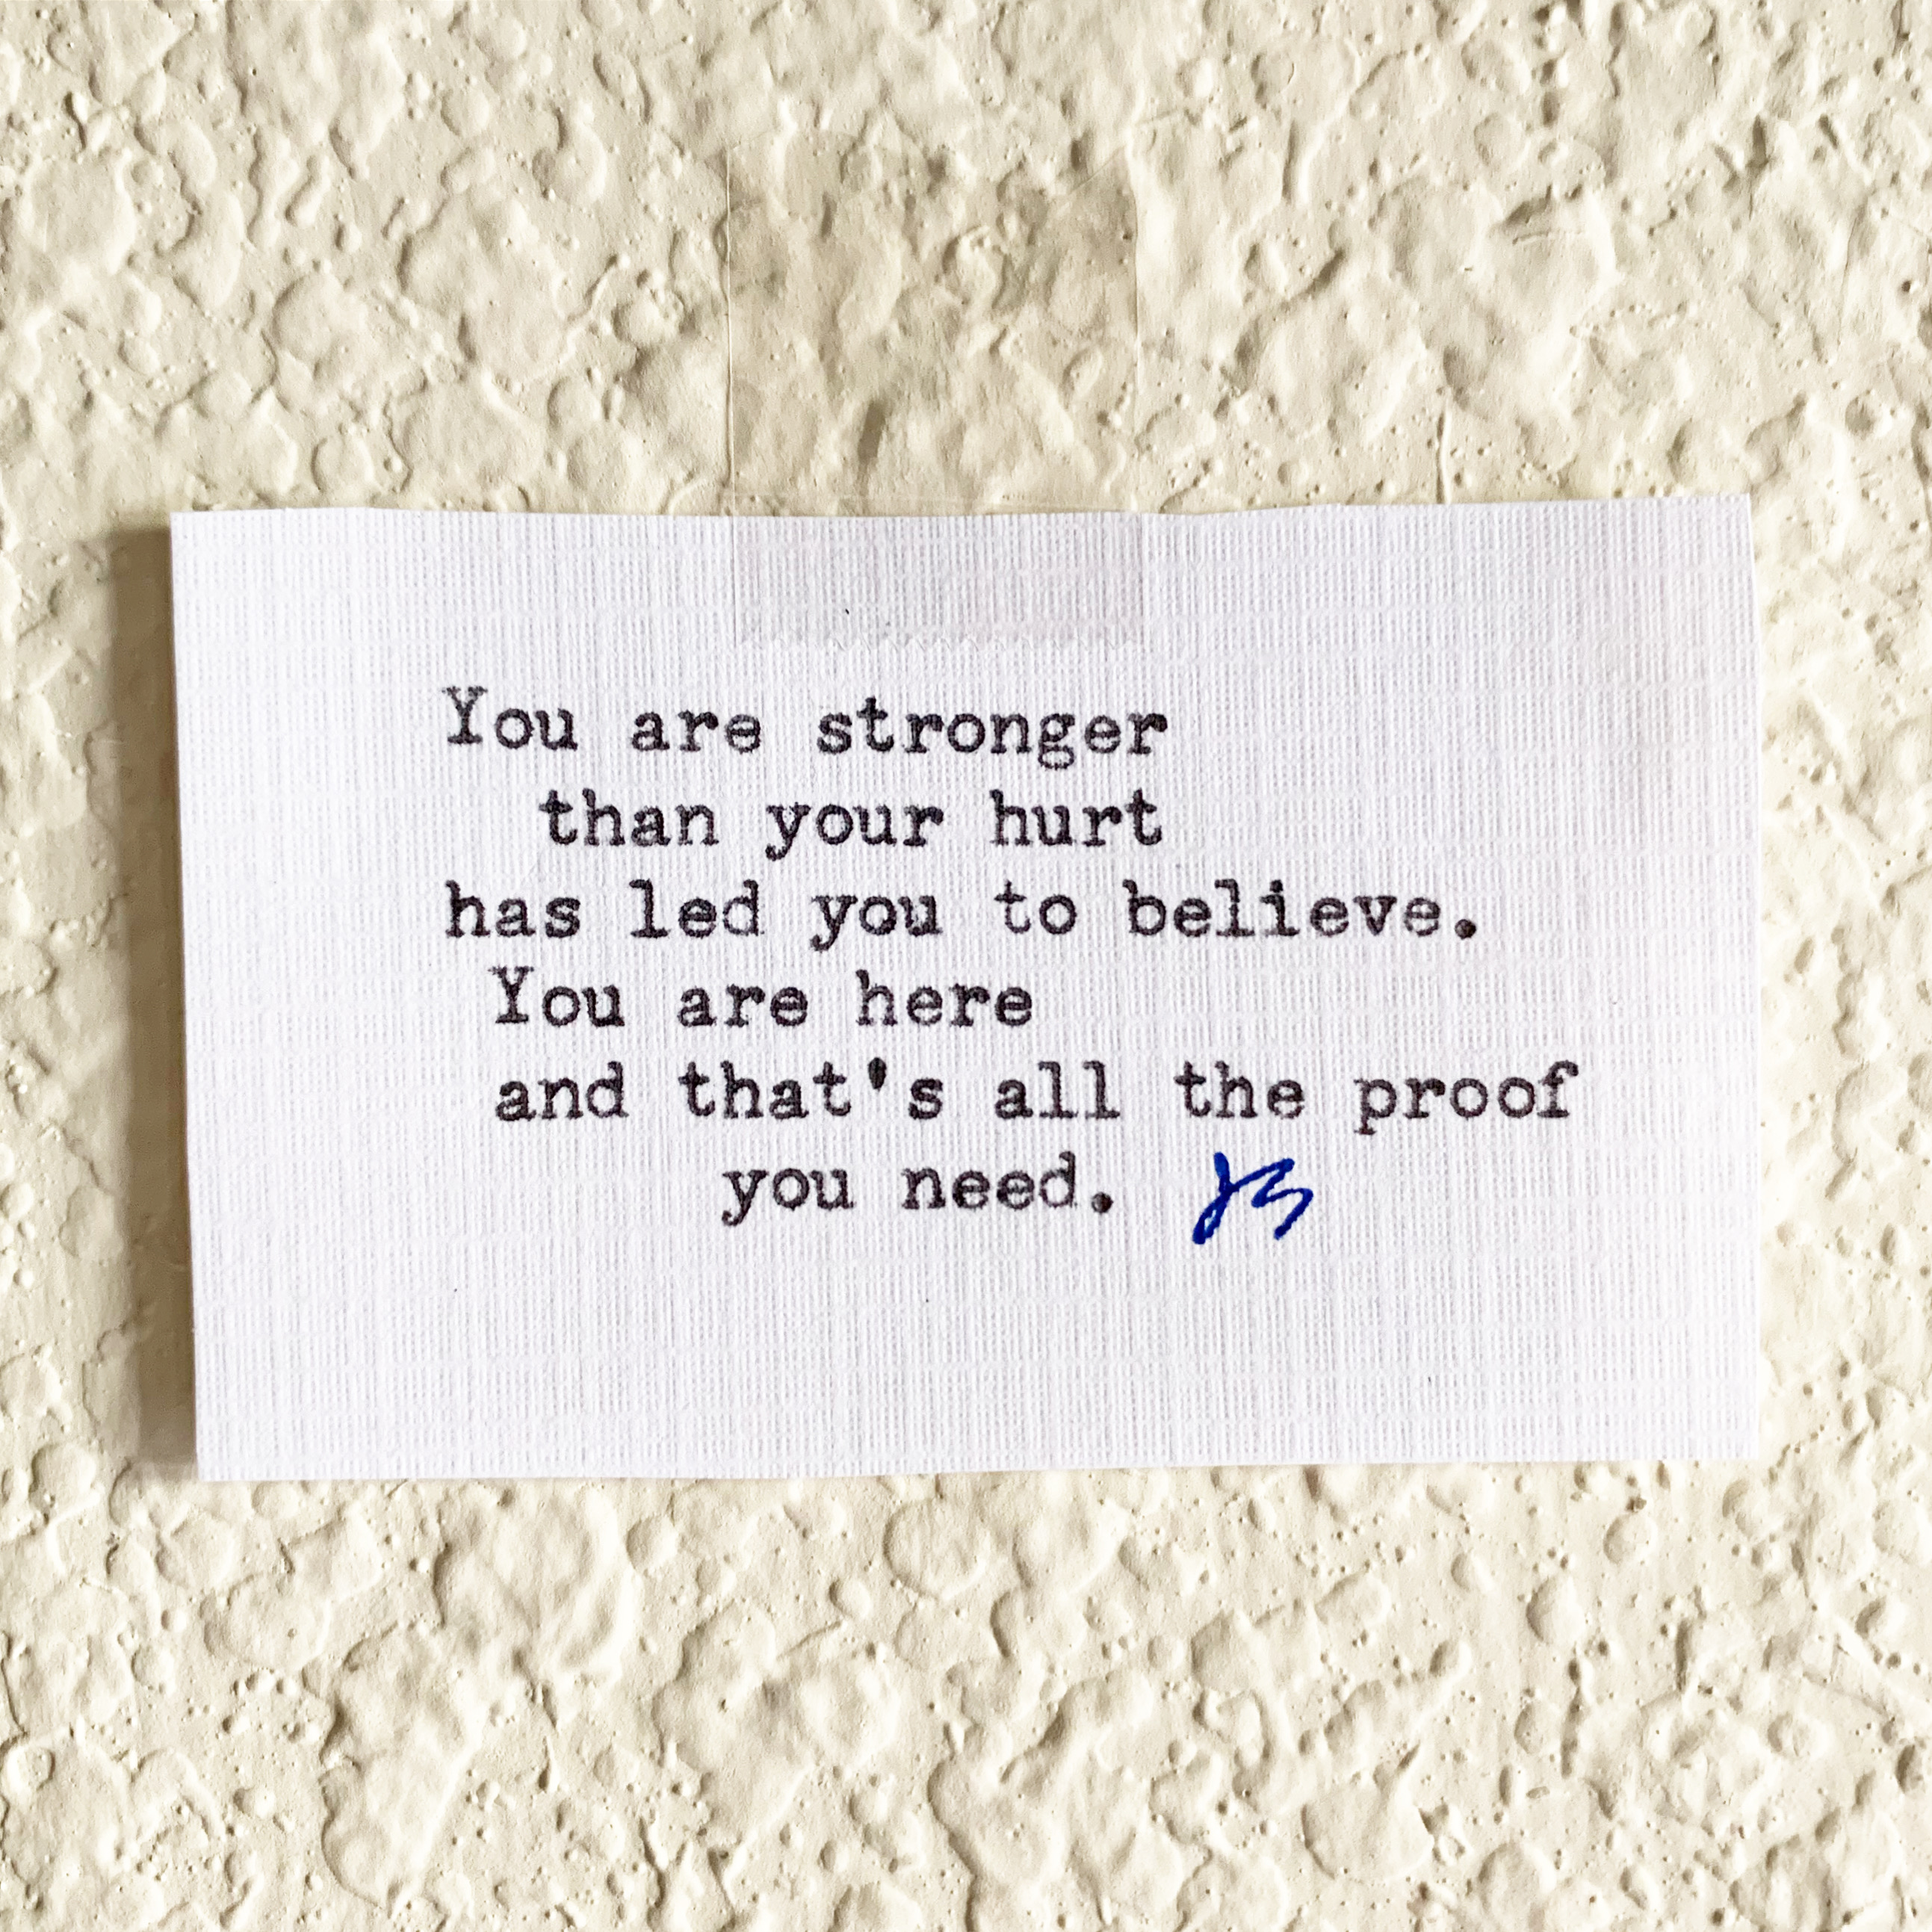 You are stronger
than your hurt
has led you to believe.
You are here
and that's all the proof
you need.